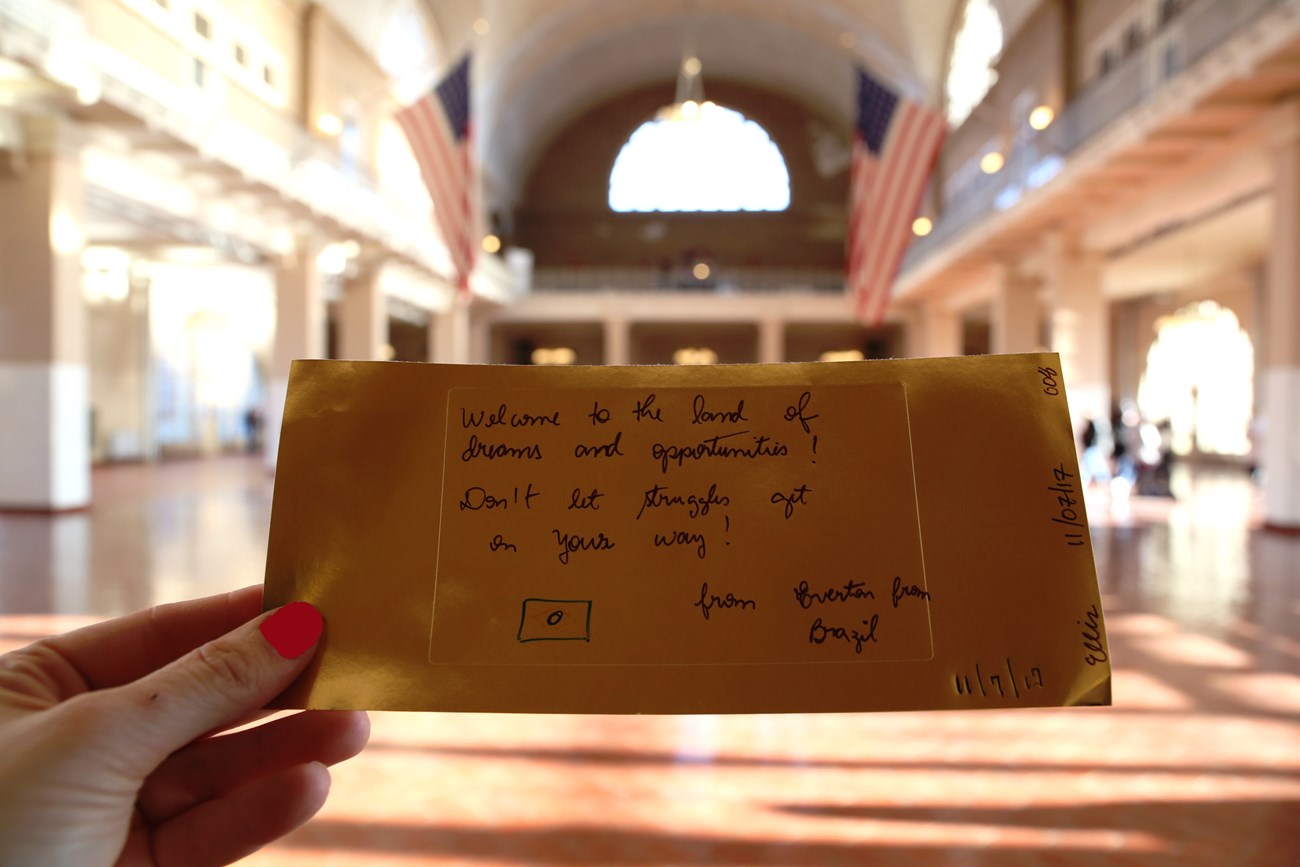 Welcome to the land of
dreams and opportunities !
Don't let struggles get
on your way !
from Everton from
Brazil
11/7/17
Ellis
11/07/17
008